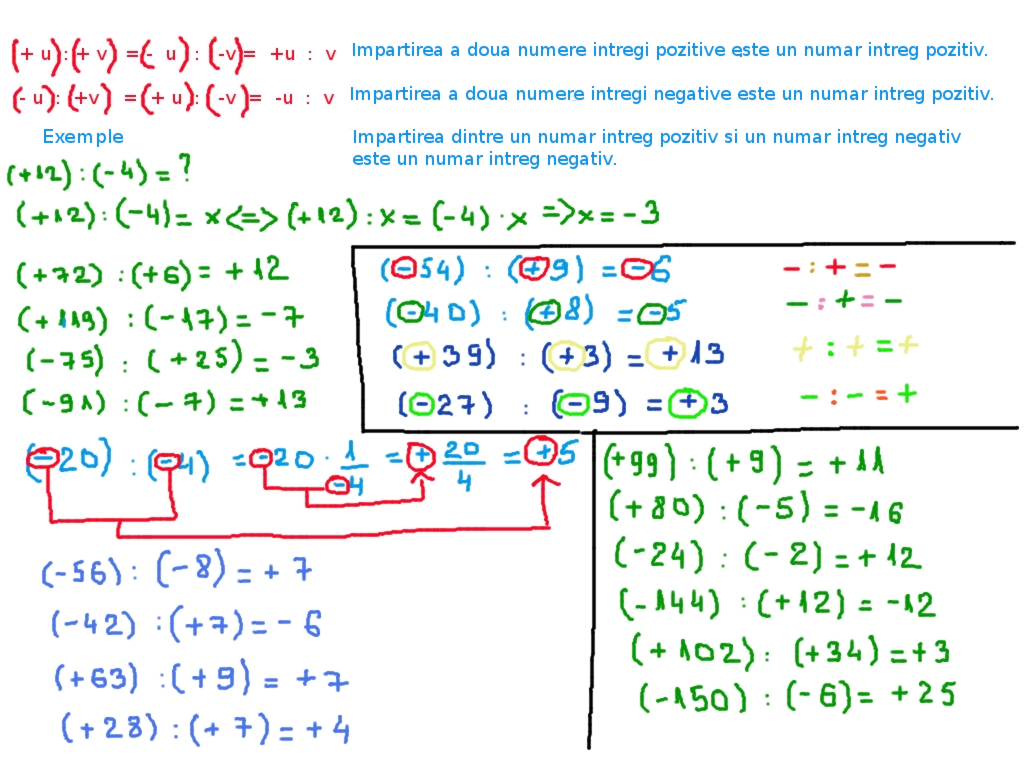 (+ u):(+ v) =(- u) : (-v)= +u : v Impartirea a doua numere intregi pozitive este un numar intreg pozitiv.
(- u): (+v) =(+ u): (-v)= -u : v Impartirea a doua numere intregi negative este un numar intreg pozitiv.
Exemple
Impartirea dintre un numar intreg pozitiv si un numar intreg negativ
este un numar intreg negativ.
(+12) : (-4) = ?
(+12) : (-4) = x <=> (+12) : x = (-4) · x => x = -3
(+72) : (+6) = +12
(+119) : (-17) = -7
(-75) : (+25) = -3
(-91) : (-7) = +13
(-54) : (+9) = -6 - : + = -
(-40) : (+8) = -5 - : + = -
(+39) : (+3) = +13 + : + = +
(-27) : (-9) = +3 - : - = +
(-20) : (-4) = -20 · 1/-4 = + 20/4 = +5
(-56) : (-8) = +7
(-42) : (+7) = -6
(+63) : (+9) = +7
(+28) : (+7) = +4
(+99) : (+9) = +11
(+80) : (-5) = -16
(-24) : (-2) = +12
(-144) : (+12) = -12
(+102) : (+34) = +3
(-150) : (-6) = +25